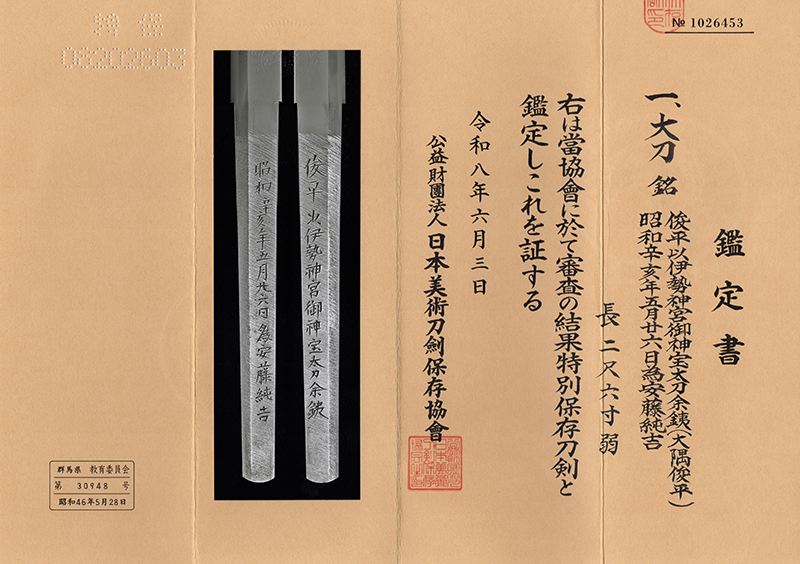 № 1026453
鑑定書
一、大刀 銘
俊平以伊勢神宮御神宝太刀余鉄(大隅俊平)
昭和辛亥年五月廿六日為安藤純吉
長 二尺六寸弱
右は當協會に於て審査の結果特別保存刀剣と
鑑定しこれを証する
令和八年六月三日
公益財團法人 日本美術刀剣保存協會
俊平以伊勢神宮御神宝太刀余鉄
昭和辛亥年五月廿六日為安藤純吉
特保
06202603
群馬県 教育委員会
第 30948 号
昭和46年5月28日